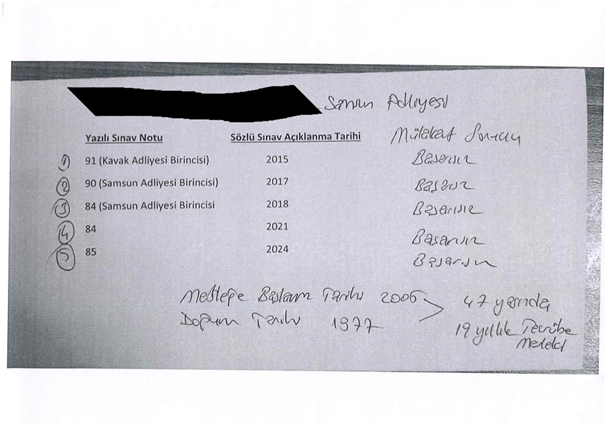 Samsun Adliyesi
Yazılı Sınav Notu Sözlü Sınav Açıklanma Tarihi Mülakat Sonucu
1) 91 (Kavak Adliyesi Birincisi) 2015 Başarısız
2) 90 (Samsun Adliyesi Birincisi) 2017 Başarısız
3) 84 (Samsun Adliyesi Birincisi 2018 Başarısız
4 84 2021 Başarısız
5) 85 2024 Başarısız
Mesleğe Başlama Tarihi 2006 > 47 yaşında
Doğum Tarihi 1977 19 yıllık Tecrübe
Mesleki